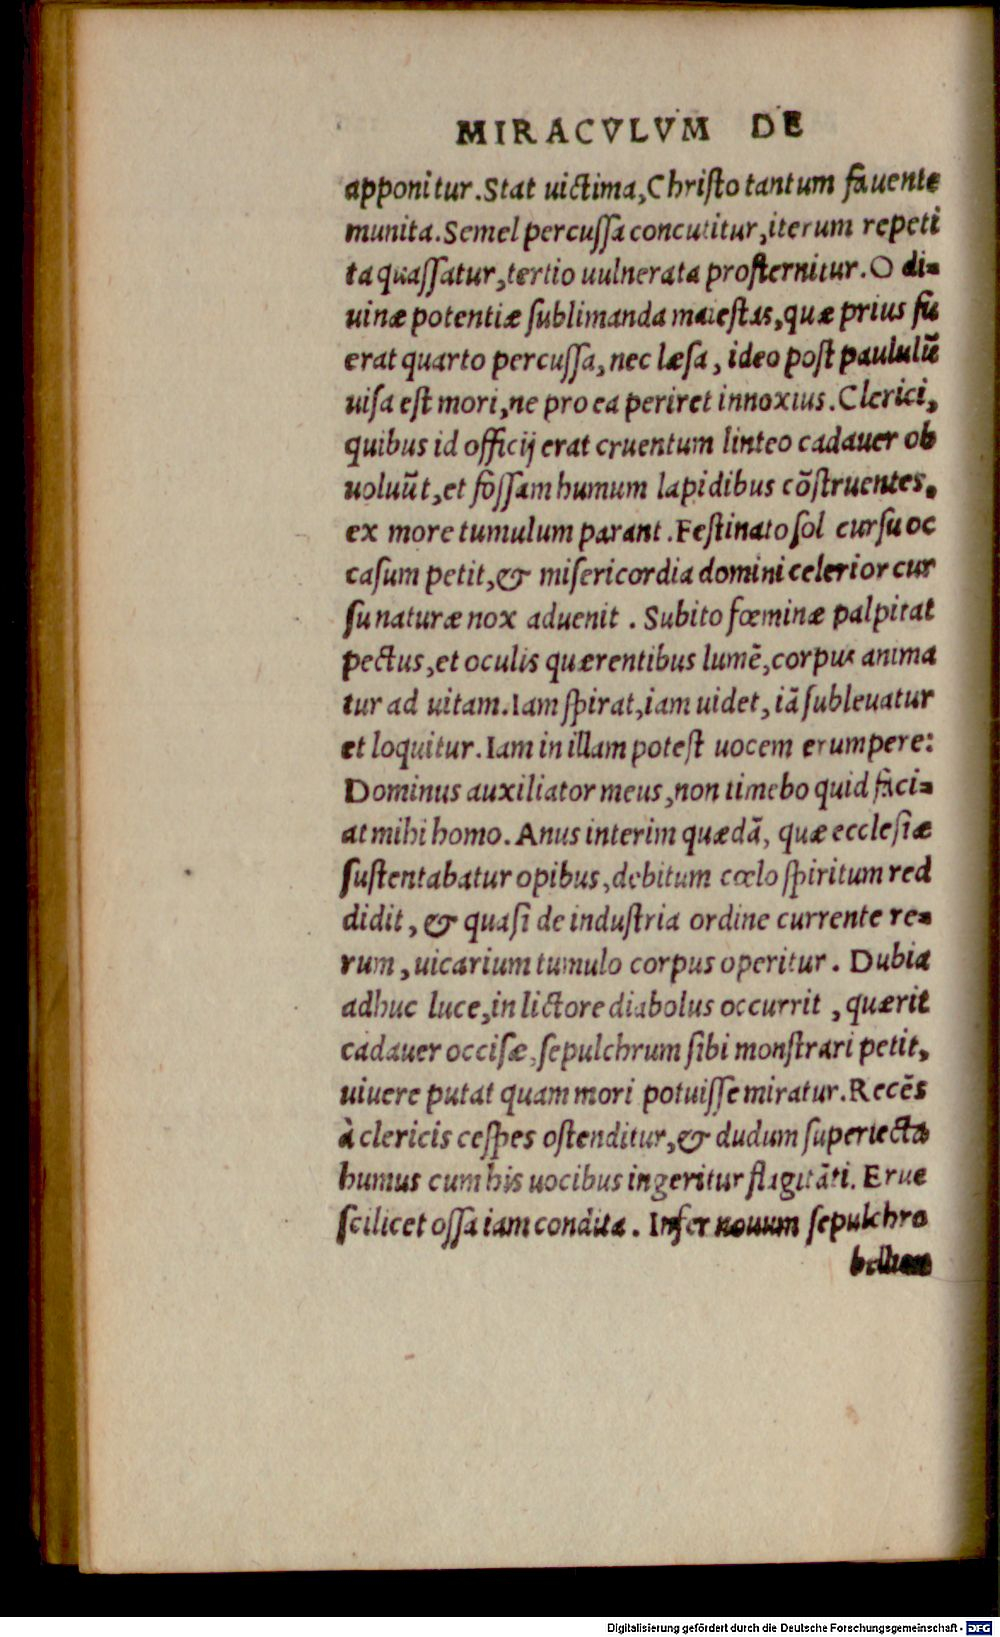 MIRACVLVM DE
apponitur. Stat uictima, Christo tantum fauente
munita. Semel percussa concutitur, iterum repeti
ta quassatur, tertio uulnerata prosternitur. O di=
uinæ potentiæ sublimanda maiestas, quæ prius fu
erat quarto percussa, nec læsa, ideo post paululũ
uisa est mori, ne pro ea periret innoxius. Clerici,
quibus id officij erat cruentum linteo cadauer ob
uoluũt, et fossam humum lapidibus cõstruentes,
ex more tumulum parant. Festinato sol cursu oc
casum petit, & misericordia domini celerior cur
su naturæ nox aduenit. Subito fœminæ palpitat
pectus, et oculis quærentibus lumẽ, corpus anima
tur ad uitam. Iam spirat, iam uidet, iã subleuatur
et loquitur. Iam in illam potest uocem erumpere:
Dominus auxiliator meus, non timebo quid faci=
at mihi homo. Anus interim quædã, quæ ecclesiæ
sustentabatur opibus, debitum cœlo spiritum red
didit, & quasi de industria ordine currente re=
rum, uicarium tumulo corpus operitur. Dubia
adhuc luce, in lictore diabolus occurrit, quærit
cadauer occisæ, sepulchrum sibi monstrari petit,
uiuere putat quam mori potuisse miratur. Recẽs
à clericis cespes ostenditur, & dudum superiecta
humus cum his uocibus ingeritur flagitãti. Erue
scilicet ossa iam condita. Infer nouum sepulchro
bellum
Digitalisierung gefördert durch die Deutsche Forschungsgemeinschaft - DFG